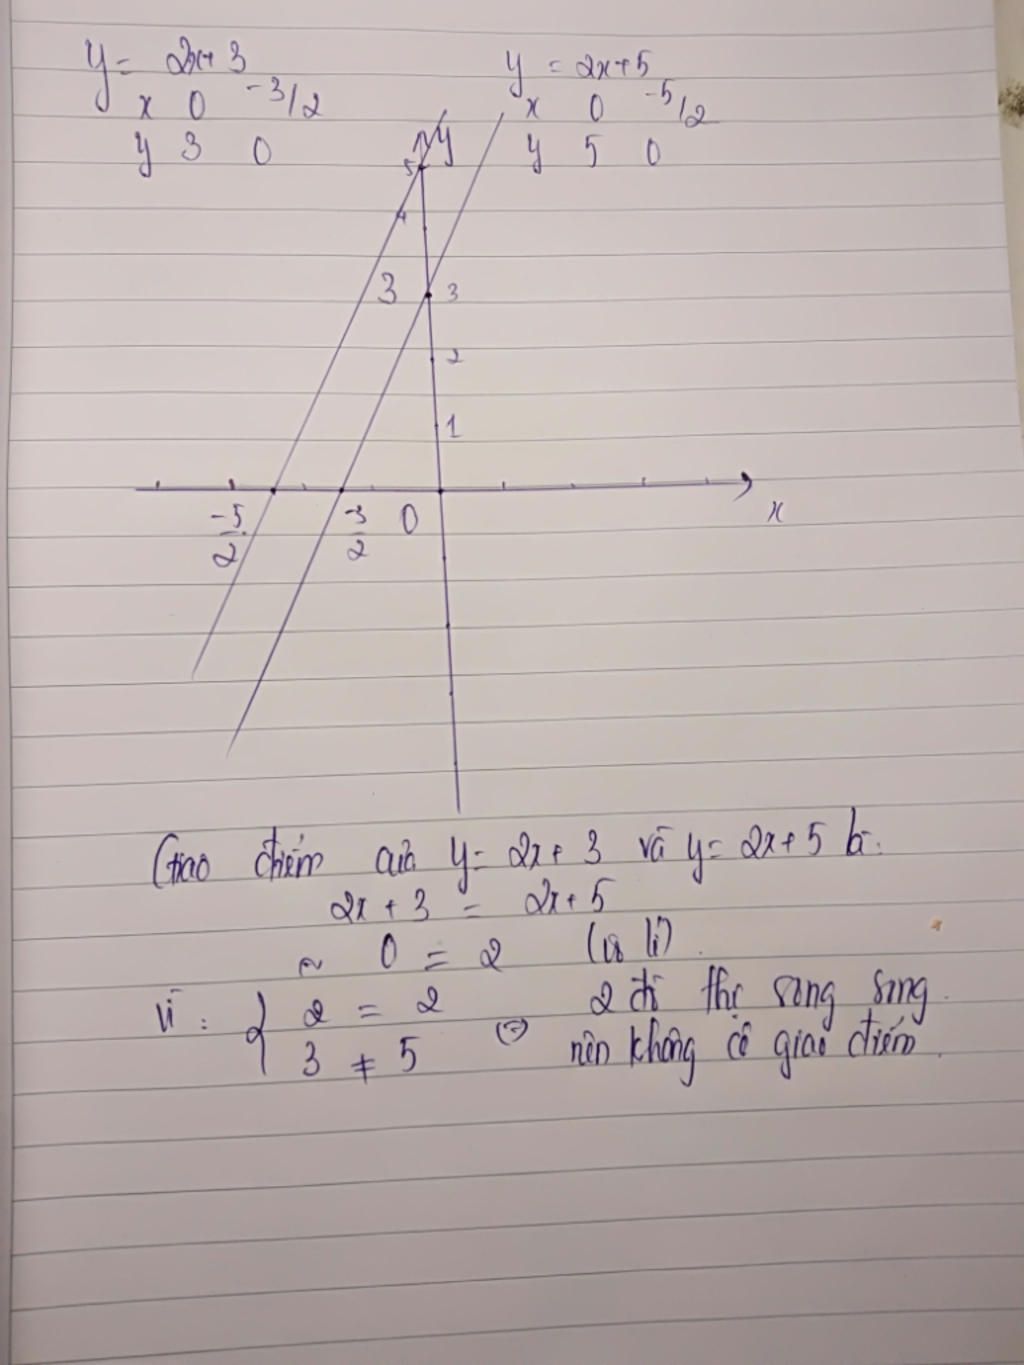 y = 2x+3
x 0 -3/2
y 3 0
y = 2x+5
x 0 -5/2
y 5 0
y
5
4
3 3
2
1
-5/2 -3/2 0 x
Giao điểm của y = 2x + 3 và y = 2x + 5 là:
2x + 3 = 2x + 5
~ 0 = 2 (vô lí).
Vì : { 2 = 2
3 ≠ 5
2 đồ thị song song
nên không có giao điểm.